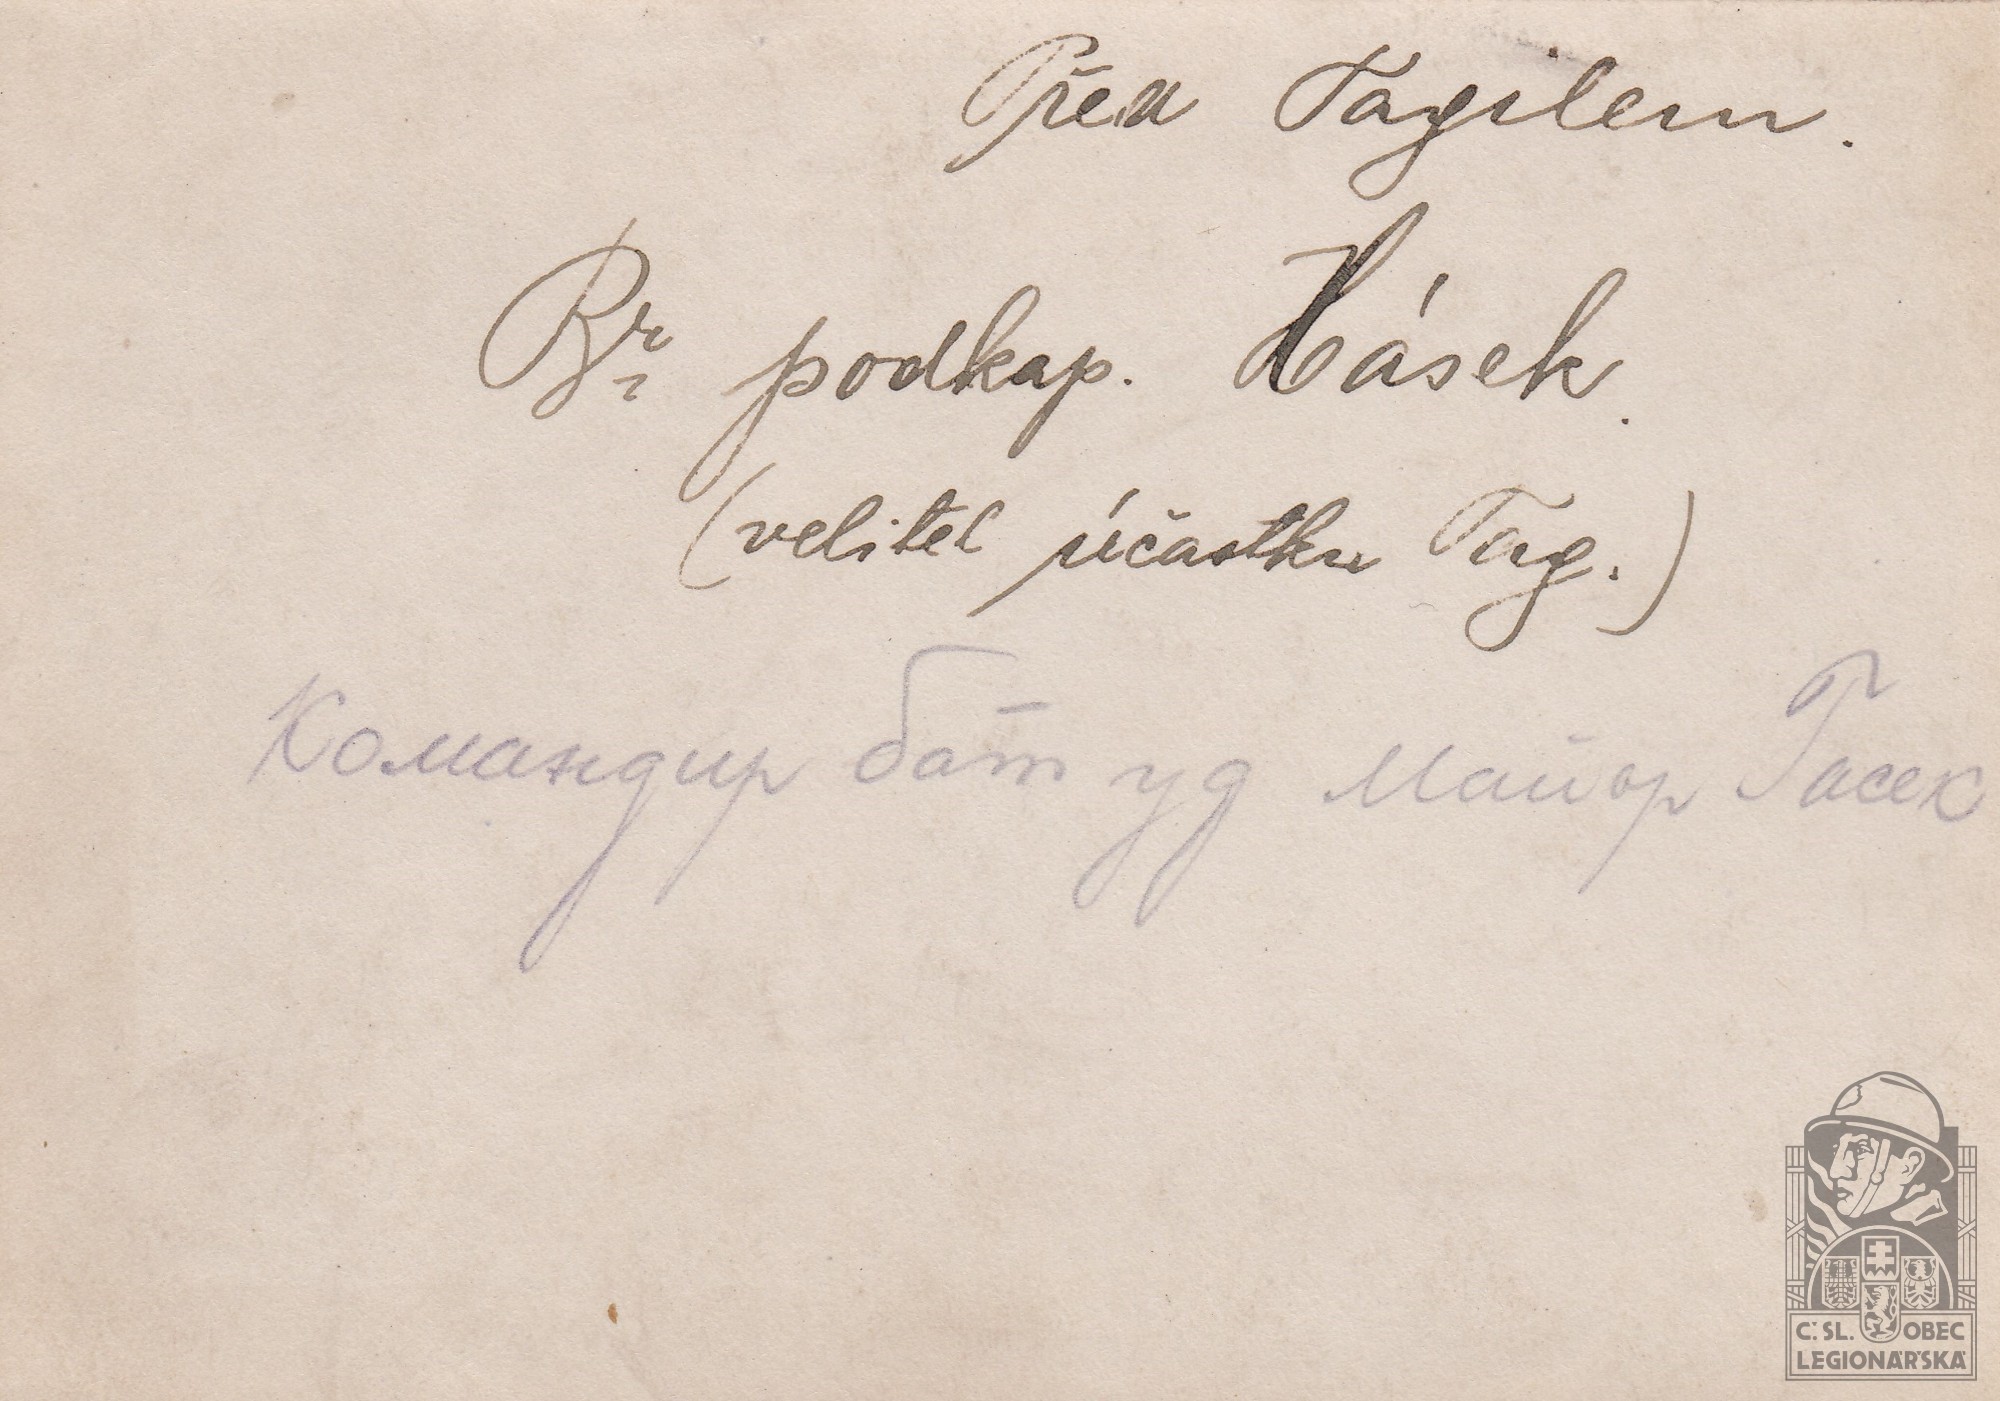 Před Tagilem.
Br. podkap. Hásek.
(velitel účastku Tag.)
Командир бат уд майор Гасек
Č. SL. OBEC
LEGIONÁŘSKÁ